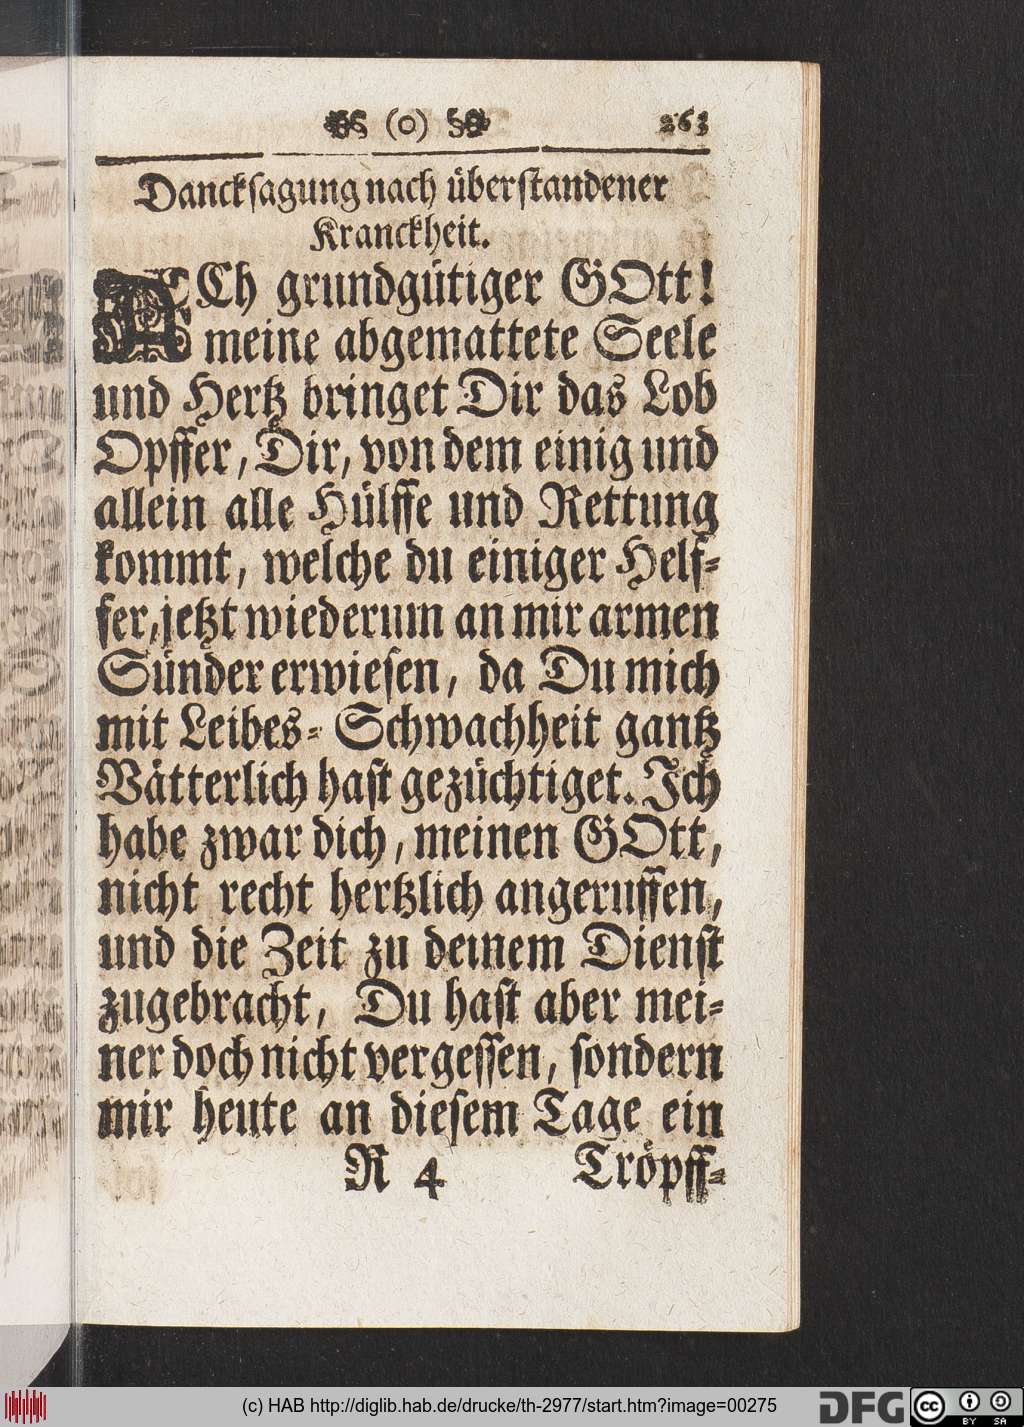 (o) 263
Dancksagung nach überstandener
Kranckheit.
ACh grundgütiger GOtt!
meine abgemattete Seele
und Hertz bringet Dir das Lob
Opffer, Dir, von dem einig und
allein alle Hülffe und Rettung
kommt, welche du einiger Helf-
fer, jetzt wiederum an mir armen
Sünder erwiesen, da Du mich
mit Leibes-Schwachheit gantz
Vätterlich hast gezüchtiget. Ich
habe zwar dich, meinen GOtt,
nicht recht hertzlich angeruffen,
und die Zeit zu deinem Dienst
zugebracht, Du hast aber mei-
ner doch nicht vergessen, sondern
mir heute an diesem Tage ein
R 4 Tröpff-
(c) HAB http://diglib.hab.de/drucke/th-2977/start.htm?image=00275
DFG
cc BY SA